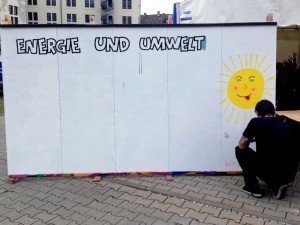 ENERGIE UND UMWELT